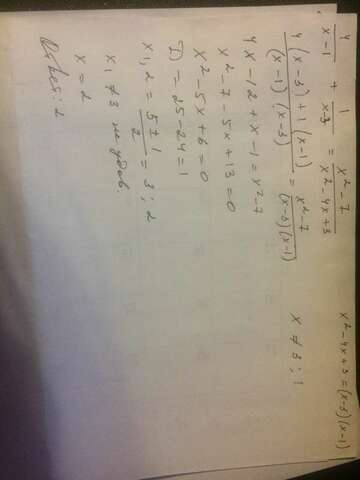 4/(x-1) + 1/(x-3) = (x²-7)/(x²-4x+3)
x²-4x+3=(x-3)(x-1)
(4(x-3)+1(x-1))/((x-1)(x-3)) = (x²-7)/((x-3)(x-1))
x ≠ 3; 1
4x-12+x-1=x²-7
x²-7-5x+13=0
x²-5x+6=0
D=25-24=1
x1,2 = (5±1)/2 = 3; 2
x1 ≠ 3 не удов.
x=2
Ответ: 2